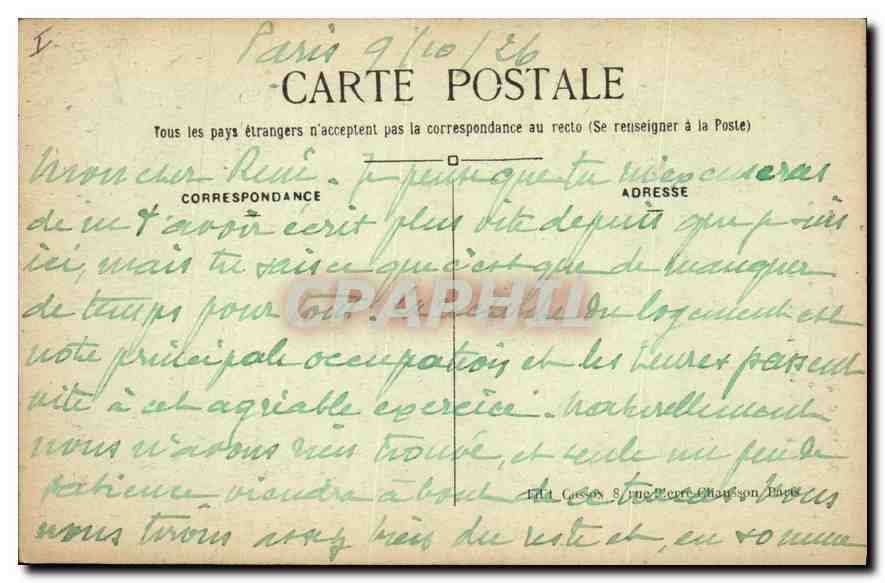 I
Paris 9/10/26
CARTE POSTALE
Tous les pays étrangers n'acceptent pas la correspondance au recto (Se renseigner à la Poste)
Mon cher René. Je pense que tu m'excuseras
CORRESPONDANCE
ADRESSE
de ne t'avoir écrit plus vite depuis que je suis
ici, mais tu sais ce que c'est que de manquer
de temps pour tout. La du logement est
CPAPHIL
notre principale occupation et les heures passent
vite à cet agréable exercice. Naturellement
nous n'avons rien trouvé, et seule un peu de
patience viendra à bout de ce Nous
Edit Cossos 8, rue Pierre-Chausson Paris
nous tirons assez bien du reste et, en somme